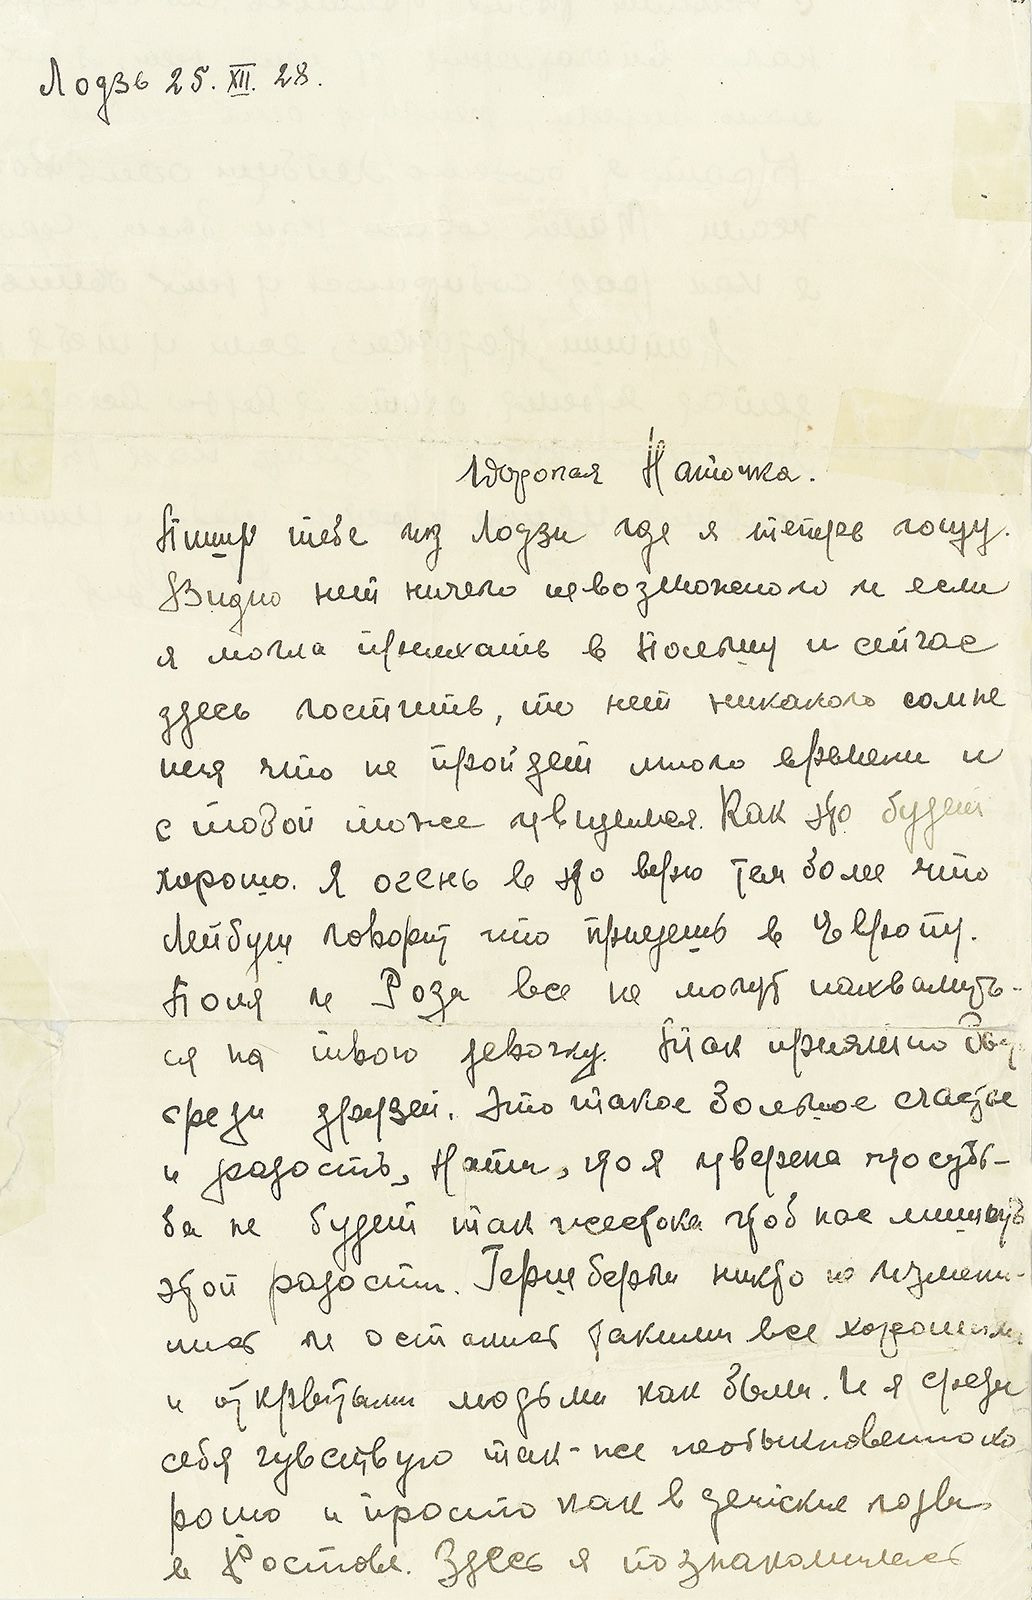 Лодзь 25. XII. 28.
Дорогая Наточка.
Пишу тебе из Лодзи где я теперь гощу.
Видно нет ничего невозможного и если
я могла приехать в Польшу и сейчас
здесь гостить, то нет никакого сомне
ния что не пройдет много времени и
с тобой тоже увидимся. Как это будет
хорошо. Я очень в это верю тем более что
Лейбуш говорит что приедешь в Европу.
Поля и Роза все не могут нахвалить-
ся на твою девочку. Так приятно быть
среди друзей. Это такое большое счастье
и радость, Ната, что я уверена что судь-
ба не будет так жестока чтоб нас лишить
этой радости. Гершберги никто не измени-
лись и остались такими все хорошими
и открытыми людьми как были. И я среди
себя чувствую так-же необыкновенно хо
рошо и просто как в детские годы
в Ростове. Здесь я познакомилась